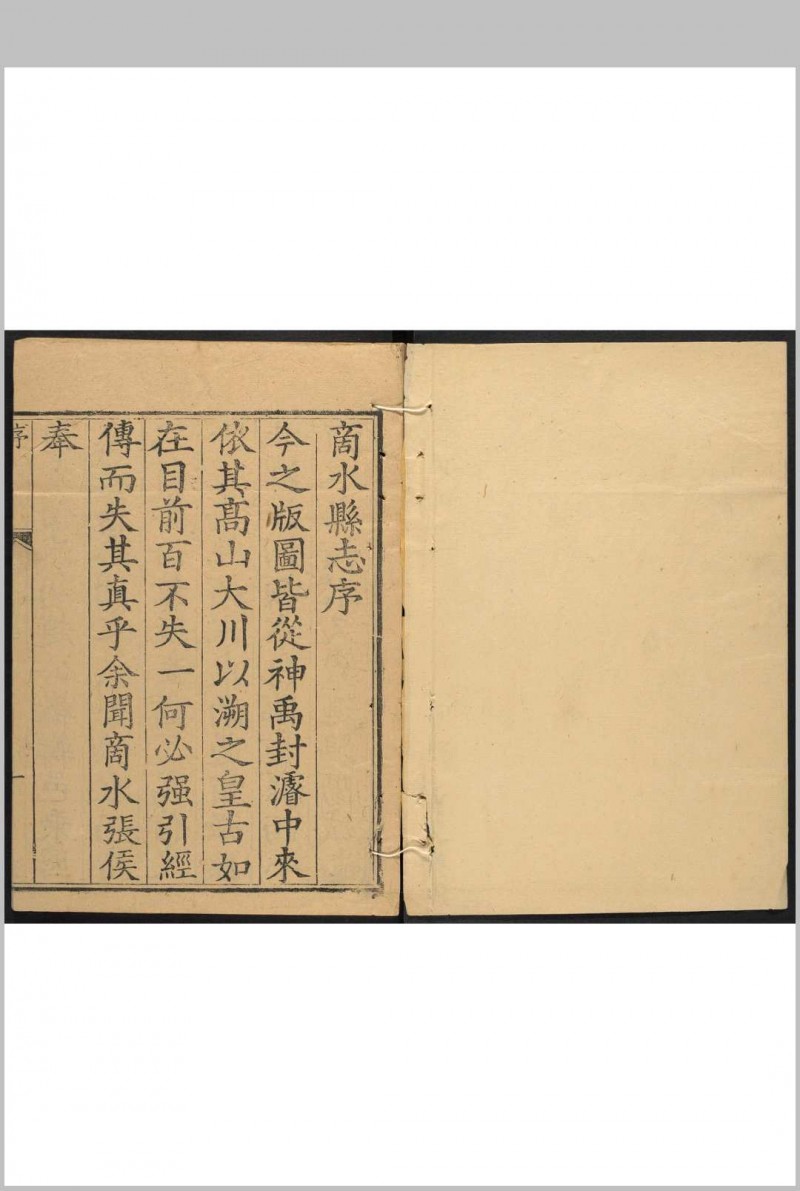 商水縣志序
今之版圖皆從神禹封濬中來
依其髙山大川以溯之皇古如
在目前百不失一何必强引經
傳而失其真乎余聞商水張侯
奉
序
一